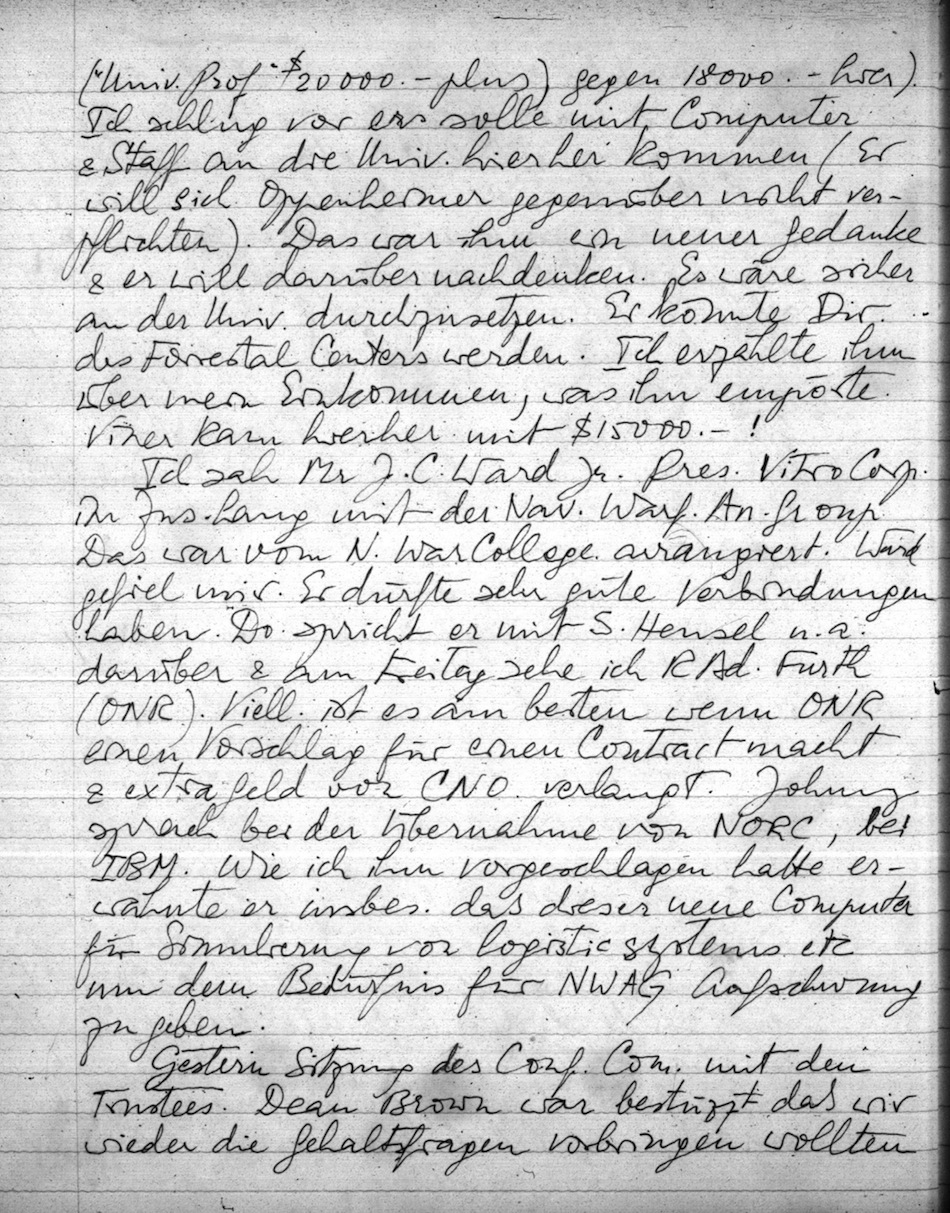 ("Univ. Prof" $20000.- plus) gegen 18000.- hier).
Ich schlug vor ers solle mit Computer
& Staff an die Univ. hierher kommen (Er
will sich Oppenheimer gegenüber nicht ver-
pflichten). Das war ihm ein neuer Gedanke
& er will darüber nachdenken. Es wäre sicher
an der Univ. durchzusetzen. Er könnte Dir.
des Forrestal Centers werden. Ich erzählte ihm
über mein Einkommen, was ihn empörte.
Viner kam hierher mit $15000.- !
Ich sah Mr J.C. Ward Jr. Pres. Vitro Corp.
im Zus.hang mit der Nav. Warf. An. Group
Das war vom N. War College arrangiert. Ward
gefiel mir. Er dürfte sehr gute Verbindungen
haben. Do. spricht er mit S. Hensel u.a.
darüber & am Freitag sehe ich R Ad. Furth
(ONR). Viell. ist es am besten wenn ONR
einen Vorschlag für einen Contract macht
& extra Geld von CNO. verlangt. Johnny
sprach bei der Übernahme von NORC, bei
IBM. Wie ich ihm vorgeschlagen hatte er-
wähnte er insbes. das dieser neue Computer
für Simulierung von logistic systems etc
um dem Bedürfnis für NWAG Aufschwung
zu geben.
Gestern Sitzung des Conf. Com. mit den
Trustees. Dean Brown war bestürzt daß wir
wieder die Gehaltsfragen vorbringen wollten